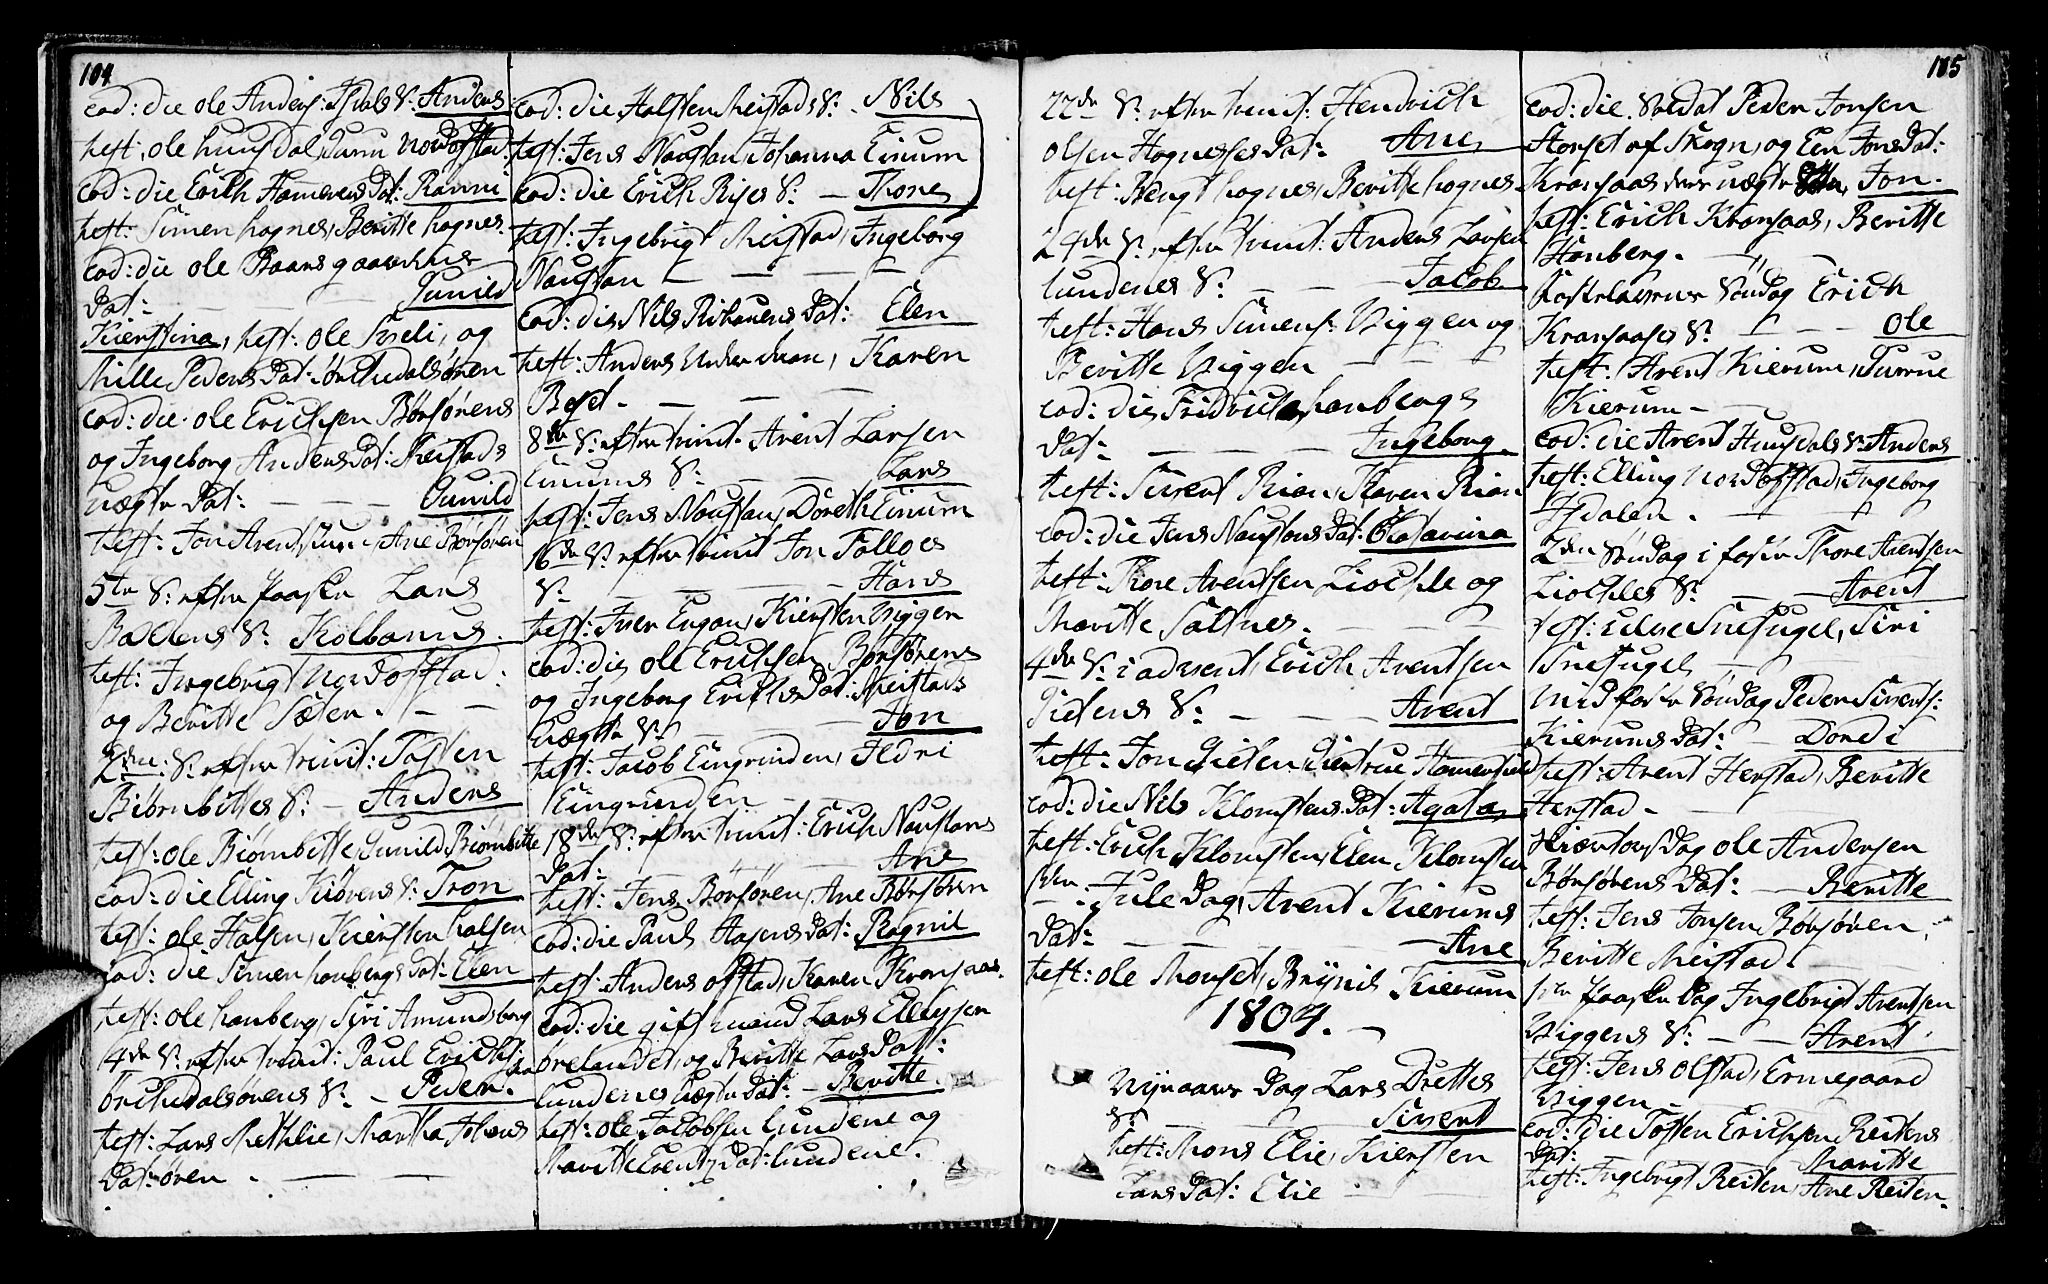 104
eod: die ole Anders: Isdals S: Anders
test: ole huusdal, Guru Nordofstad
eod: die Erich Hammerens Dat: Ranni
test: Simen hognes, Beritte hognes.
eod: die ole Baarsgaardens
Dat: — — Gunild
Kierstina, test: ole Indli, og
Mille Peders Dat: Orchedalsøren
eod: die ole Erichsen Børsørens
og Ingeborg Anders Dat: Meistads
uægte Dat: — — Gunild
test: Jon Arent, Ane Børsøren
5te S: efter paaske Lars
Baldens S: Kolbanus.
test: Ingebrigt Nordofstad:
og Beritte Sæter. — —
2den S: efter trinit: Tosten
Biørnbittes S: — Anders
test: ole Biørnbitte, Gunild Biørnbitte
eod: die Elling Kiørens S: Tron
test: ole Halsen, Kiersten halsen
eod: die Simen honbergs Dat: Elen
test: ole honberg, Siri Amundsberg
4de S: efter trinit: Paul Erichs:
Orchedalsørens S: — Peder.
test: Lars Methlie, Martha Johans
Dat: øren. — —
eod: die Halsten Meistads S: Nils
test: Jens Naustan, Johanna Einum
eod: die Erich Rises S: — Thore
test: Ingebrigt Meistad, Ingeborg
Naustan — — — —
eod: die Nils Rihauens Dat: Elen
test: Anders Underdaan, Karen
Byset. — — —
8de S: efter trinit. Arent Larsen
Einums S: — — Lars
test: Jens Naustan, Doreth Einum
16de S: efter trinit Jon Folloes
S: — — — Hans
test: Iver Engan, Kiersten Viggen
eod: die ole Erichsen Børsørens
og Ingeborg Erichs Dat: Meistads
uægte S: — — Jon
test: Jacob Eingrinden, Ildri
Eingrinden —
18de S: efter trinit: Erich Naustans
Dat: — — Ane
test: Jens Børsøren, Ane Børsøren
eod: die Paul Hasens Dat: Ragnil
test: Anders ofstad, Karen Kronsaas.
eod: die gift mand Lars Ellefsen
ørelandet, og Beritte Lars Dat:
lundenes uægte Dat: — Beritte.
test: ole Jacobsen lundene og
Maritte Events Dat: lundene.
22de S: efter trinit: Hendrich
olsen Hognesses Dat: Ane
test: Bengt hognes, Beritte hognes.
24de S: efter trinit: Anders Larsen
lundenes S: — — Jacob
test: Hans Simens: Viggen og
Beritte Viggen — — —
eod: die Fridrich honbergs
Dat: — — — Ingeborg.
test: Sivert Rian, Karen Rian
eod: die Jens Naustans Dat: Catarina
test: Thore Arentsen Liochle og
Maritte Saltnes. — — —
4de S: i advent, Erich Arentsen
Gietens S: — — — Arent
test: Jon Gieten,
eod: die Nils Klomstens Dat: Agata
test: Erich Klomsten, Elen Klomsten
1ste Juledag, Arent Kierums
Dat: — — — Ane
test: ole Monset, Brynil Kierum
1804. —
Nytaars Dag Lars Drettes
S: — — Sivert
test: Mons Elie, Kiersten
Lars Dat: Elie —
105
eod: die Soldat Peder Jonsen
Storset af Skogn, og Een Jons Dat:
Kronsaas deres uægte Søn, Jon.
test: Erich Kronsaas, Beritte
Honberg. — —
Fastelavens Søndag Erich
Kronsaases S: — — — Ole
test: Arent Kierum, Gurrue
Kierum — —
eod: die Arent Huusdals S: Anders
test: Elling Nordofstad, Ingeborg
Isdalen. — —
2den Søndag i faste Thore Arentsen
Liochles S: — — Arent
test: Snefugel, Siri
Snefugel —
midfaste Søndag Peder Siverts:
Kierums Dat: — Dordi
test: Arent Herstad, Beritte
Herstad — —
Skiertorsdag ole Andersen
Børsørens Dat: — Beritte
test: Jens Jonsen Børsøren,
Beritte Meistad. —
1ste paaske Dag Ingebrigt Arentsen
Viggens S: — — Arent
test: Jens Olstad, Ermegaard
Viggen —
eod: die Tosten Erichsen Reitens
Dat: — — Maritte
test: Ingebrigt Reiten, Ane Reiten.